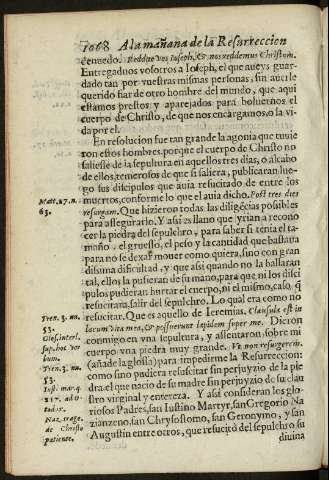 1068 A la mañana de la Resurreccion
denuedo. Reddite vos Ioseph, & nos reddemus Christum.
Entregadnos vosotros a Ioseph, el que aueys guar-
dado tan por vuestras mismas personas, sin auerle
querido fiar de otro hombre del mundo, que aqui
estamos prestos y aparejados para boluernos el
cuerpo de Christo, de que nos encargamos, o la vi-
da por el.
En resolucion fue tan grande la agonia que tuuie
ron estos hombres, porque el cuerpo de Christo no
saliesse de la sepultura en aquellos tres dias, o alcabo
de ellos, temerosos de que si saliera, publicaran lue-
go sus dicipulos que auia resucitado de entre los
Matt. 27. n.
63.
muertos, conforme lo que el auia dicho. Post tres dies
resurgam. Que hizieron todas las diligẽcias posibles
para assegurarlo. Y asi es llano que yrian a recono
cer la piedra del sepulchro, para saber si tenia el ta-
maño, el gruesso, el peso y la cantidad que bastaua
para no se dexar mouer como quiera, sino con gran
disima dificultad, y que asi quando no la hallaran
tal, ellos la pusieran de su mano, para que ni los disci
pulos pudieran hurtar el cuerpo, ni el mismo, caso q̃
resucitara, salir del sepulchro. Lo qual era como no
Tren. 3. nu.
53.
Glos. interl.
sup. hoc ver
bum.
Tren. 3. nu.
53.
resucitar. Que es aquello de Ieremias. Clausula est in
lacum vita mea, & posuerunt lapidem super me. Dieron
conmigo en vna sepultura, y assentaron sobre mi
cuerpo vna piedra muy grande. Ve non resurgerem.
(añade la glossa) para impedirme la Resurreccion:
como sino pudiera resuscitar sin perjuyzio de la pie
Iust. mar. q.
117. ad or-
todox.
Naz. trage.
de Christo
patiente.
dra, el que nacio de su madre sin perjuyzio de su clau
stro virginal y entereza. Y asi consideran los glo
riosos Padres, san Iustino Martyr, san Gregorio Na
zianzeno, san Chrysostomo, san Geronymo, y san
Augustin entre otros, que resucitò del sepulchro su
diuina